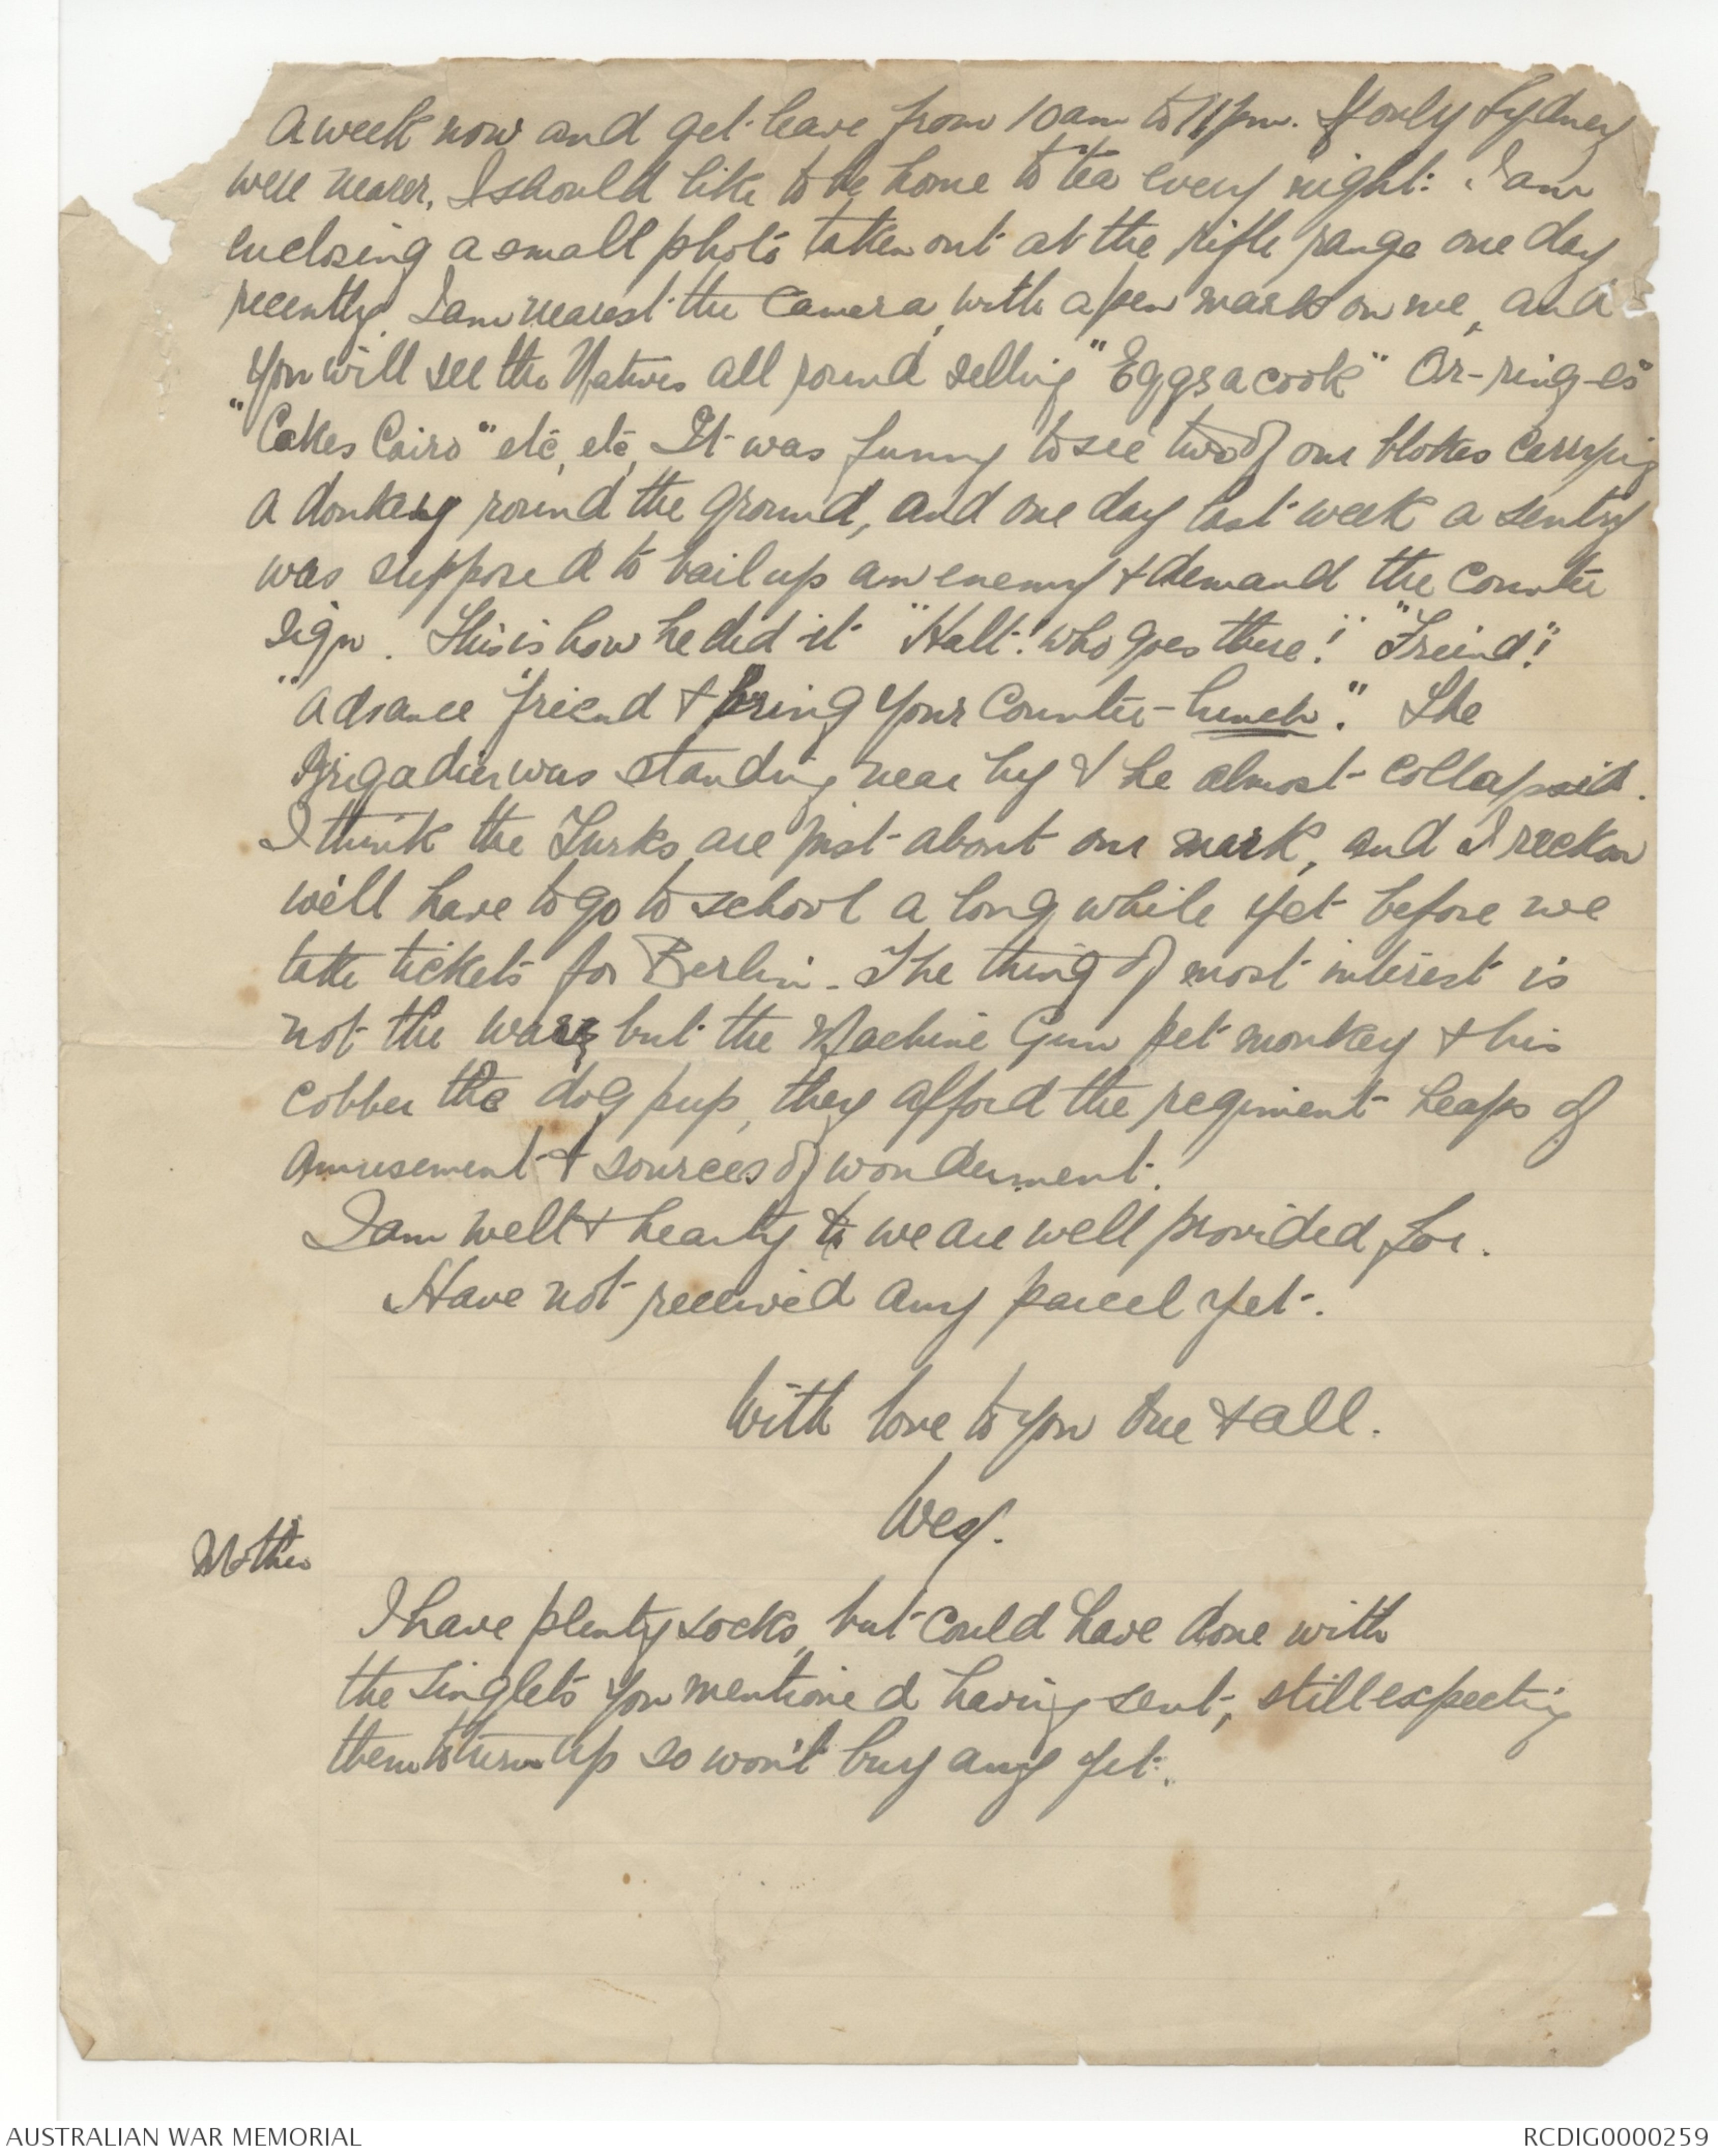 a week now and get leave from 10am to 11pm. If only Sydney
were nearer, I should like to be home to tea every night. I am
enclosing a small photo taken out at the rifle range one day
recently. I am nearest the camera, with a pen mark on me, and
you will see the Natives all round selling "Eggsacook" Or-ring-es"
"Cakes Cairo" etc, etc, It was funny to see two of our blokes carrying
a donkey round the ground, and one day last week a sentry
was supposed to bail up an enemy & demand the counter
sign. This is how he did it "Halt! who goes there!" "Freind!"
"Advance friend & bring your counter-lunch." The
Brigadier was standing near by & he almost collapsed.
I think the Turks are just about our mark, and I reckon
we'll have to go to school a long while yet before we
take tickets for Berlin. The thing of most interest is
not the war but the Machine Gun pet monkey & his
cobber the dog pup, they afford the regiment heaps of
amusement & sources of wonderment.
I am well & hearty & we are well provided for.
Have not received any parcel yet.
With love to you one & all.
Wes.
Mother
I have plenty socks, but could have done with
the singlets you mentioned having sent, still expecting
them to turn up so won't buy any yet.
AUSTRALIAN WAR MEMORIAL
RCDIG0000259